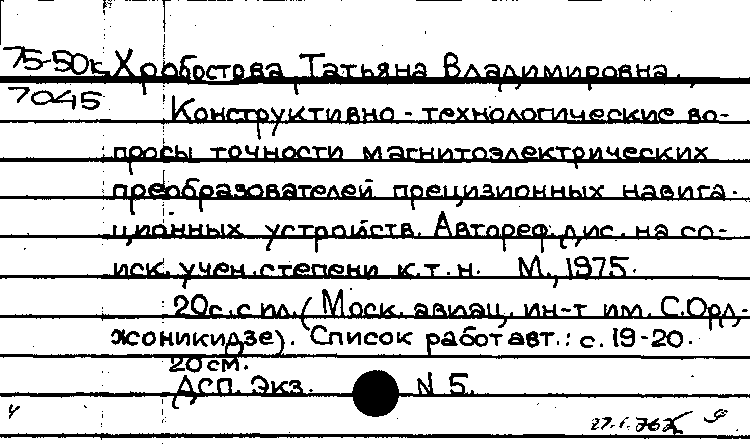 75-50к Хробостова Татьяна Владимировна.
7045
Конструктивно-технологические во-
просы точности магнитоэлектрических
преобразователей прецизионных навига-
ционных устройств. Автореф. дис. на со-
иск. учен. степени к.т.н. М., 1975.
20с. с ил. (Моск. авиац. ин-т им. С.Орд-
жоникидзе). Список работ авт.: с. 19-20.
20см.
ДСП. Экз. N 5.